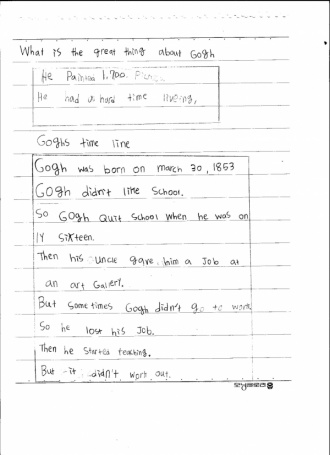 What is the great thing about Gogh
He Painted 1,700
He had a hard time liveing,
Goghs time line
Gogh was born on march 30, 1853
Gogh didn't like School.
So Gogh Quit School when he was on
ly Sixteen.
Then his uncle gave him a Job at
an art Gallery.
But Sometimes Gogh didn't go to work
So he lost his Job.
Then he Started teaching.
But it didn't wort out.